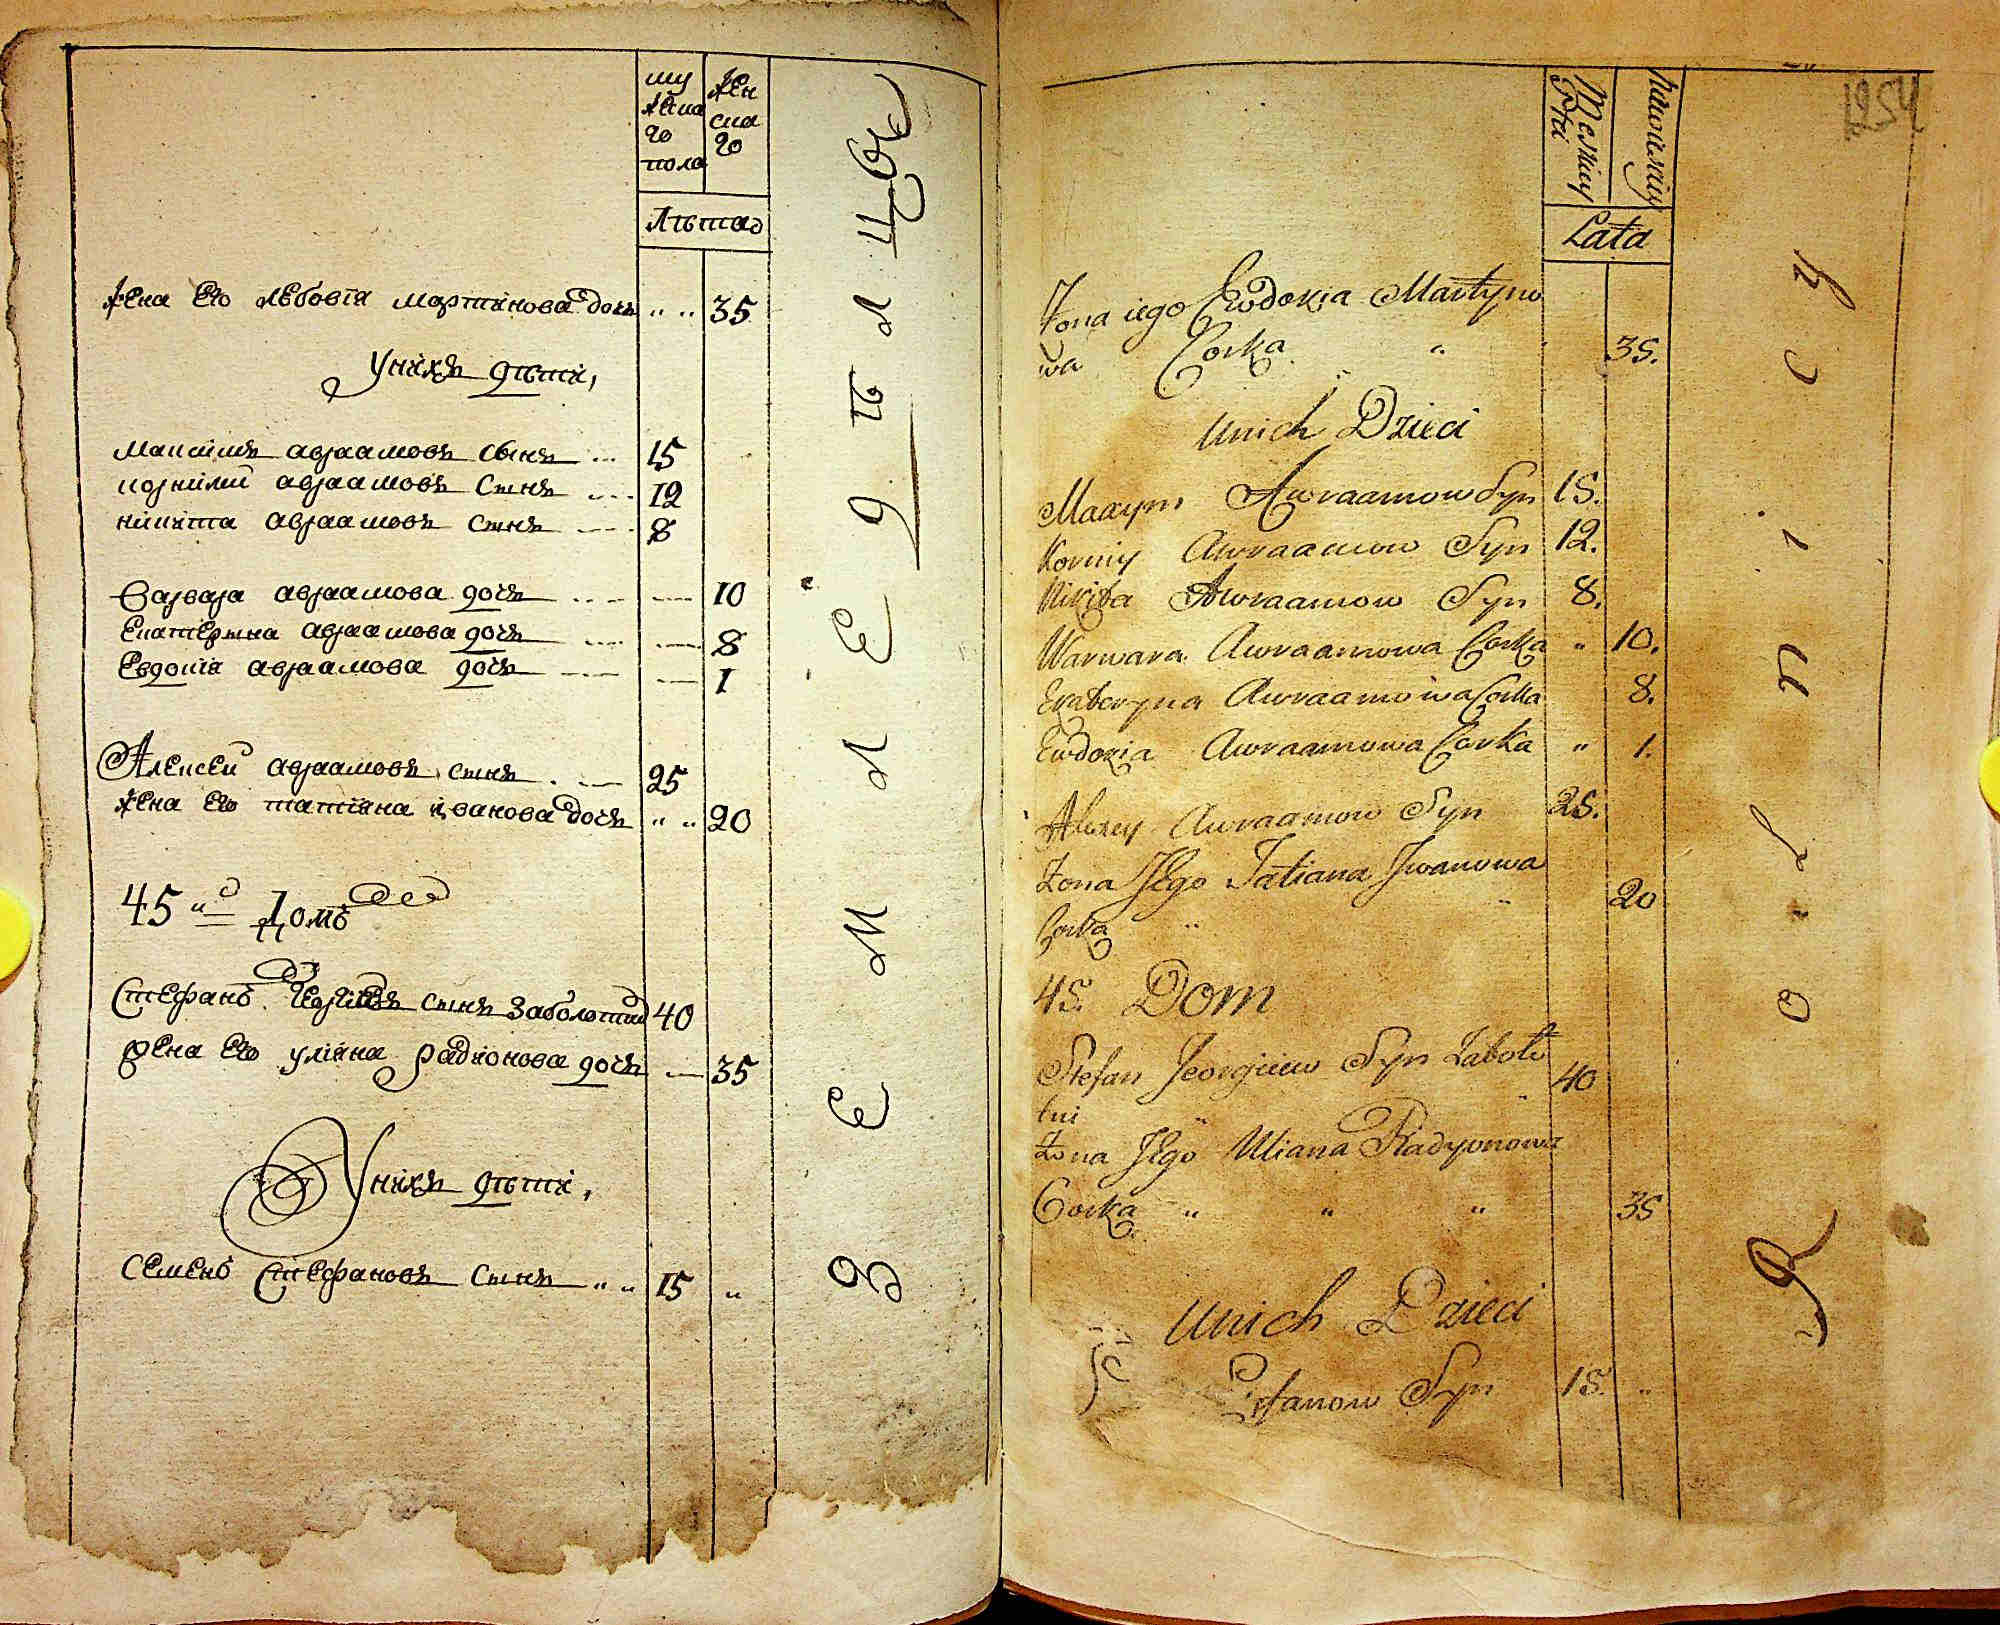 му
жена
го
пола
жен
ска
го
Лѣта
жена его мартинова дочь " " 35
Унихъ дѣти,
Максимъ авраамовъ сынъ ... 15
корнилий авраамовъ сынъ .... 12
никита авраамовъ сынъ .... 8
Варвара авраамова дочь .... 10
Екатерина авраамова дочь .... 8
Евдокія авраамова дочь .... 1
Алексей авраамовъ сынъ . 25
жена его татіяна иванова дочь " " 20
45 й Домъ
Стефанъ сынъ Заболотни 40
жена его уліяна радионова дочь 35
Унихъ дѣти,
Семенъ Стефановъ сынъ " " 15 "
З Е М Л Е Д Ѣ Л
Męskiey
Lata
Żona iego Ewdokia Martyno
wa Corka " 35.
Unich Dzieci
Maxym Awraamow Syn 15.
Korniy Awraamow Syn 12.
Nikita Awraamow Syn 8.
Warwara Awraamowa Corka " 10.
Ekateryna Awraamowa Corka 8.
Ewdokia Awraamowa Corka " 1.
Alexey Awraamow Syn 25.
Żona Jego Tatiana Jwanowa
Corka " " 20
45. Dom
Stefan Jeorgiiew Syn Zabolo
tni " " 40
Żona Jego Uliana Radyonowa
Corka " " " 35
Unich Dzieci
Stefanow Syn 15. "
R o l n i c y